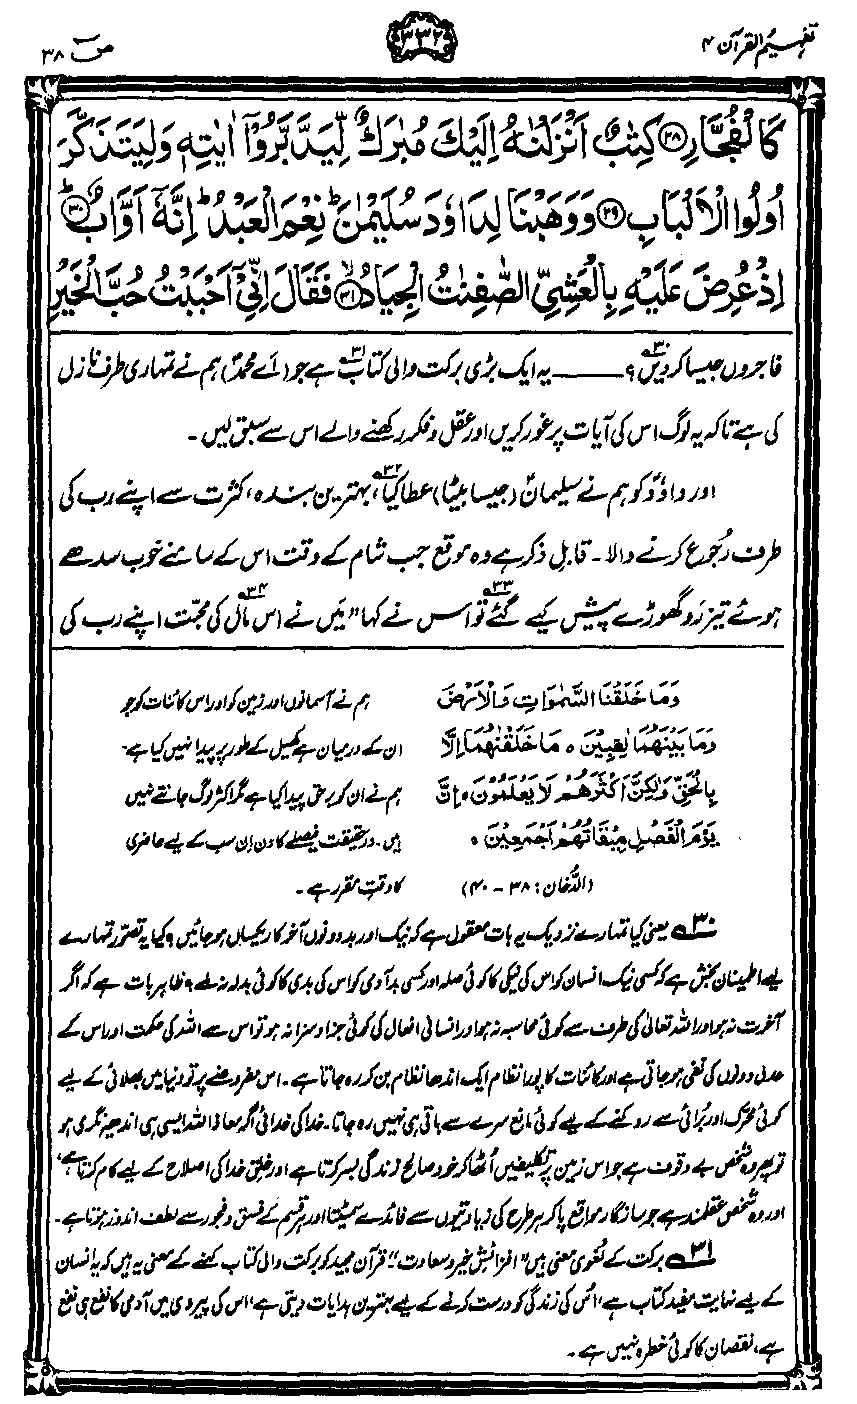 تفہیم القرآن ۴
۳۳۲
صٓ ۳۸
كَالْفُجَّارِ ﴿۲۸﴾ كِتٰبٌ اَنْزَلْنٰهُ اِلَيْكَ مُبٰرَكٌ لِّيَدَّبَّرُوْۤا اٰيٰتِهٖ وَلِيَتَذَكَّرَ
اُولُوا الْاَلْبَابِ ﴿۲۹﴾ وَوَهَبْنَا لِدَاوٗدَ سُلَيْمٰنَ ؕ نِعْمَ الْعَبْدُ ؕ اِنَّهٗۤ اَوَّابٌ ﴿۳۰﴾ؕ
اِذْ عُرِضَ عَلَيْهِ بِالْعَشِيِّ الصّٰفِنٰتُ الْجِيَادُ ﴿۳۱﴾ۙ فَقَالَ اِنِّيْۤ اَحْبَبْتُ حُبَّ الْخَيْرِ
فاجروں جیسا کر دیں۳۰؟ ——— یہ ایک بڑی برکت والی کتاب۳۱ ہے جو (اے محمدؐ) ہم نے تمہاری طرف نازل
کی ہے تاکہ یہ لوگ اس کی آیات پر غور کریں اور عقل و فکر رکھنے والے اس سے سبق لیں۔
اور داؤدؑ کو ہم نے سلیمانؑ (جیسا بیٹا) عطا کیا،۳۲ بہترین بندہ، کثرت سے اپنے رب کی
طرف رُجوع کرنے والا۔ قابلِ ذکر ہے وہ موقع جب شام کے وقت اس کے سامنے خوب سدھے
ہوئے تیز رَو گھوڑے پیش کیے گئے۳۳ تو اس نے کہا ”میں نے اس مال۳۴ کی محبّت اپنے رب کی
وَمَا خَلَقْنَا السَّمٰوَاتِ وَالْاَرْضَ
ہم نے آسمانوں اور زمین کو اور اس کائنات کو جو
وَمَا بَيْنَهُمَا لٰعِبِيْنَ ہ مَا خَلَقْنٰهُمَا اِلَّا
ان کے درمیان ہے کھیل کے طور پر پیدا نہیں کیا ہے۔
بِالْحَقِّ وَلٰكِنَّ اَكْثَرَهُمْ لَا يَعْلَمُوْنَ ہ اِنَّ
ہم نے ان کو برحق پیدا کیا ہے مگر اکثر لوگ جانتے نہیں
يَوْمَ الْفَصْلِ مِيْقَاتُهُمْ اَجْمَعِيْنَ ہ
ہیں۔ درحقیقت فیصلے کا دن اِن سب کے لیے حاضری
(الدُّخان: ۳۸ - ۴۰)
کا وقتِ مقرر ہے۔
۳۰ یعنی کیا تمہارے نزدیک یہ بات معقول ہے کہ نیک اور بد دونوں آخر کار یکساں ہو جائیں؟ کیا یہ تصوّر تمہارے
لیے اطمینان بخش ہے کہ کسی نیک انسان کو اس کی نیکی کا کوئی صلہ اور کسی بد آدمی کو اس کی بدی کا کوئی بدلہ نہ ملے؟ ظاہر بات ہے کہ اگر
آخرت نہ ہو اور اللہ تعالیٰ کی طرف سے کوئی محاسبہ نہ ہو اور انسانی افعال کی کوئی جزا و سزا نہ ہو تو اس سے اللہ کی حکمت اور اس کے
عدل دونوں کی نفی ہو جاتی ہے اور کائنات کا پورا نظام ایک اندھا نظام بن کر رہ جاتا ہے۔ اس مفروضے پر تو دنیا میں بھلائی کے لیے
کوئی محرّک اور بُرائی سے روکنے کے لیے کوئی مانع سرے سے باقی ہی نہیں رہ جاتا۔ خدا کی خدائی اگر معاذ اللہ ایسی ہی اندھیر نگری ہو
تو پھر وہ شخص بے وقوف ہے جو اس زمین پر تکلیفیں اُٹھا کر خود صالح زندگی بسر کرتا ہے اور خلقِ خدا کی اصلاح کے لیے کام کرتا ہے،
اور وہ شخص عقلمند ہے جو سازگار مواقع پا کر ہر طرح کی زیادتیوں سے فائدے سمیٹتا اور ہر قسم کے فسق و فجور سے لطف اندوز ہوتا ہے۔
۳۱ برکت کے لُغوی معنی ہیں ”افزائشِ خیر و سعادت“۔ قرآن مجید کو برکت والی کتاب کہنے کے معنی یہ ہیں کہ یہ انسان
کے لیے نہایت مفید کتاب ہے، اُس کی زندگی کو درست کرنے کے لیے بہترین ہدایات دیتی ہے، اس کی پیروی میں آدمی کا نفع ہی نفع
ہے، نقصان کا کوئی خطرہ نہیں ہے۔